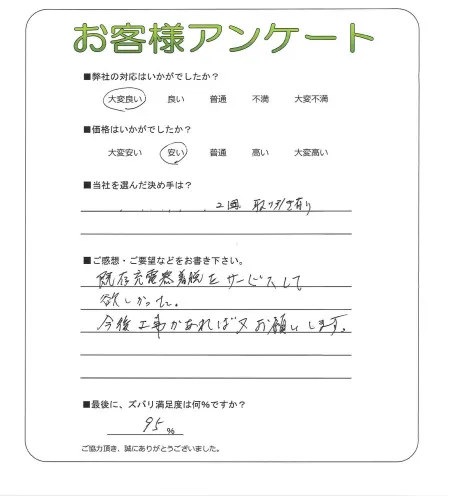 お客様アンケート
■弊社の対応はいかがでしたか？
大変良い 良い 普通 不満 大変不満
■価格はいかがでしたか？
大変安い 安い 普通 高い 大変高い
■当社を選んだ決め手は？
2回 取り引き有り
■ご感想・ご要望などをお書き下さい。
既存充電器着脱をサービスして
欲しかった。
今後工事があれば又お願いします。
■最後に、ズバリ満足度は何％ですか？
95 %
ご協力頂き、誠にありがとうございました。